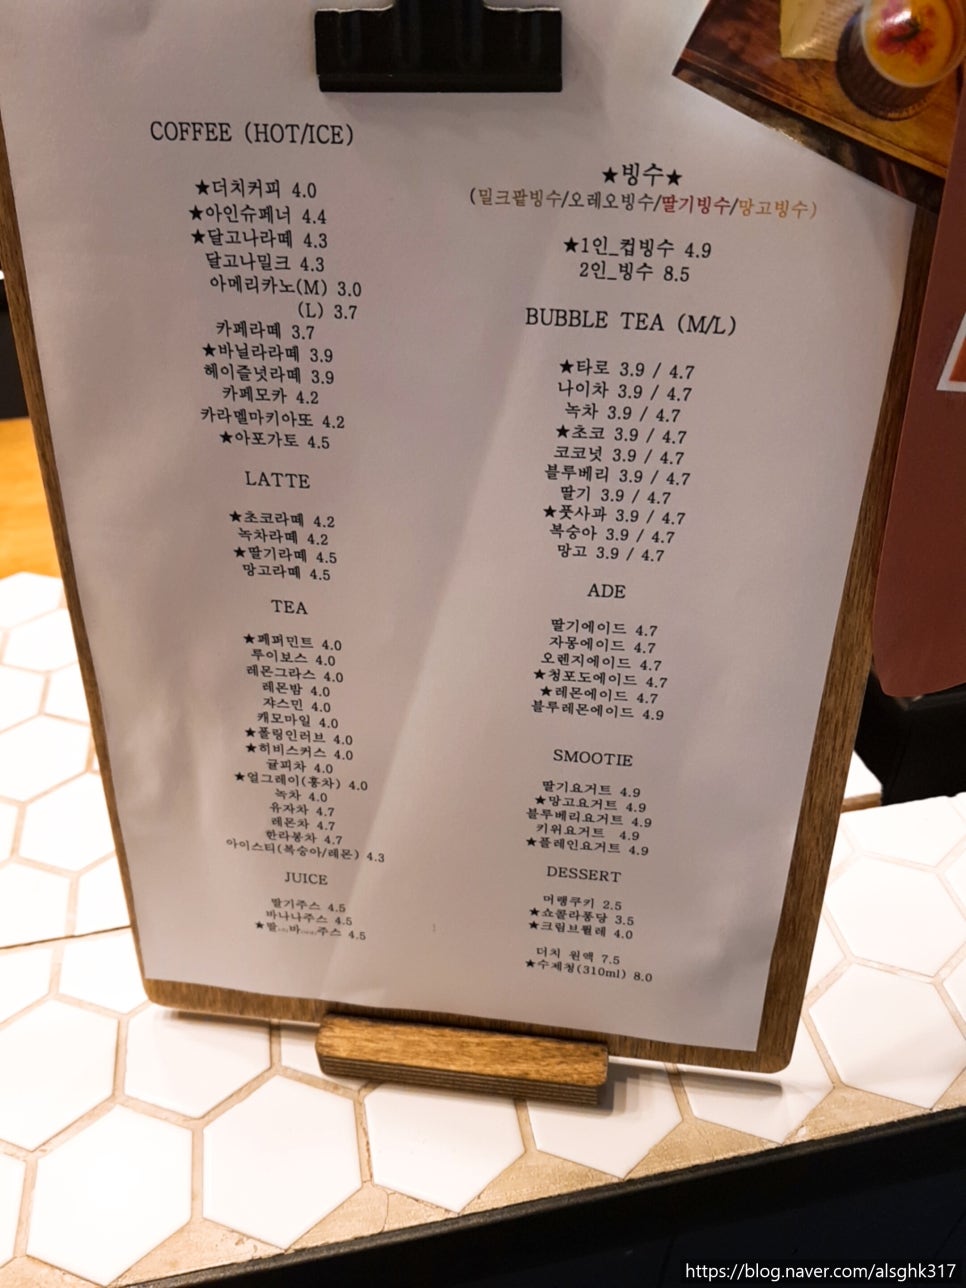 COFFEE (HOT/ICE)
★더치커피 4.0
★아인슈페너 4.4
★달고나라떼 4.3
달고나밀크 4.3
아메리카노(M) 3.0
(L) 3.7
카페라떼 3.7
★바닐라라떼 3.9
헤이즐넛라떼 3.9
카페모카 4.2
카라멜마키아또 4.2
★아포가토 4.5
LATTE
★초코라떼 4.2
녹차라떼 4.2
★딸기라떼 4.5
망고라떼 4.5
TEA
★페퍼민트 4.0
루이보스 4.0
레몬그라스 4.0
레몬밤 4.0
쟈스민 4.0
캐모마일 4.0
★폴링인러브 4.0
★히비스커스 4.0
귤피차 4.0
★얼그레이(홍차) 4.0
녹차 4.0
유자차 4.7
레몬차 4.7
한라봉차 4.7
아이스티(복숭아/레몬) 4.3
JUICE
딸기주스 4.5
바나나주스 4.5
★딸 바 주스 4.5
★빙수★
(밀크팥빙수/오레오빙수/딸기빙수/망고빙수)
★1인_컵빙수 4.9
2인_빙수 8.5
BUBBLE TEA (M/L)
★타로 3.9 / 4.7
나이차 3.9 / 4.7
녹차 3.9 / 4.7
★초코 3.9 / 4.7
코코넛 3.9 / 4.7
블루베리 3.9 / 4.7
딸기 3.9 / 4.7
★풋사과 3.9 / 4.7
복숭아 3.9 / 4.7
망고 3.9 / 4.7
ADE
딸기에이드 4.7
자몽에이드 4.7
오렌지에이드 4.7
★청포도에이드 4.7
★레몬에이드 4.7
블루레몬에이드 4.9
SMOOTIE
딸기요거트 4.9
★망고요거트 4.9
블루베리요거트 4.9
키위요거트 4.9
★플레인요거트 4.9
DESSERT
머랭쿠키 2.5
★쇼콜라퐁당 3.5
★크림브륄레 4.0
더치 원액 7.5
★수제청(310ml) 8.0
https://blog.naver.com/alsghk317